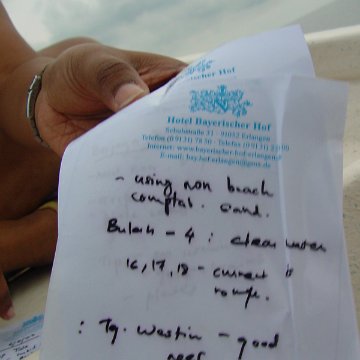 Hotel Bayerischer Hof
Schuhstraße 31 - 91052 Erlangen
Telefon (0 91 31) 78 50 - Telefax (0 91 31) 2 58 00
Internet: www.bayerischer-hof-erlangen
E-mail: bay.hof.erlangen@gmx.de
- using non beach
Sand.
- 4 : clear water
16, 17, 18 - current is
rough.
: Tg. Westin - good